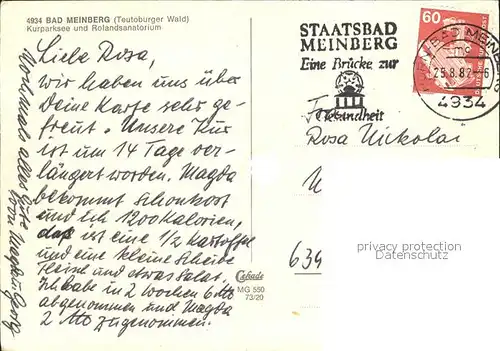 4934 BAD MEINBERG (Teutoburger Wald)
Kurparksee und Rolandsanatorium
Liebe Rosa,
wir haben uns über
Deine Karte sehr ge-
freut. Unsere Kur
ist um 14 Tage ver-
längert worden. Magda
bekommt Schonkost
und ich 1200 Kalorien,
das ist eine 1/2 Kartoffel
und eine kleine Scheibe
Fleisch und etwas Salat.
Ich habe in 2 Wochen 6 Ko
abgenommen und Magda
2 Ko zugenommen.
Nochmals alles Gute
von Magda u. Georg
Cekade
MG 550
73/20
STAATSBAD
MEINBERG
Eine Brücke zur
Gesundheit
60
BAD MEINBERG
25.8.82
4934
Rosa Nickolai
639
privacy protection
VDKAM.de